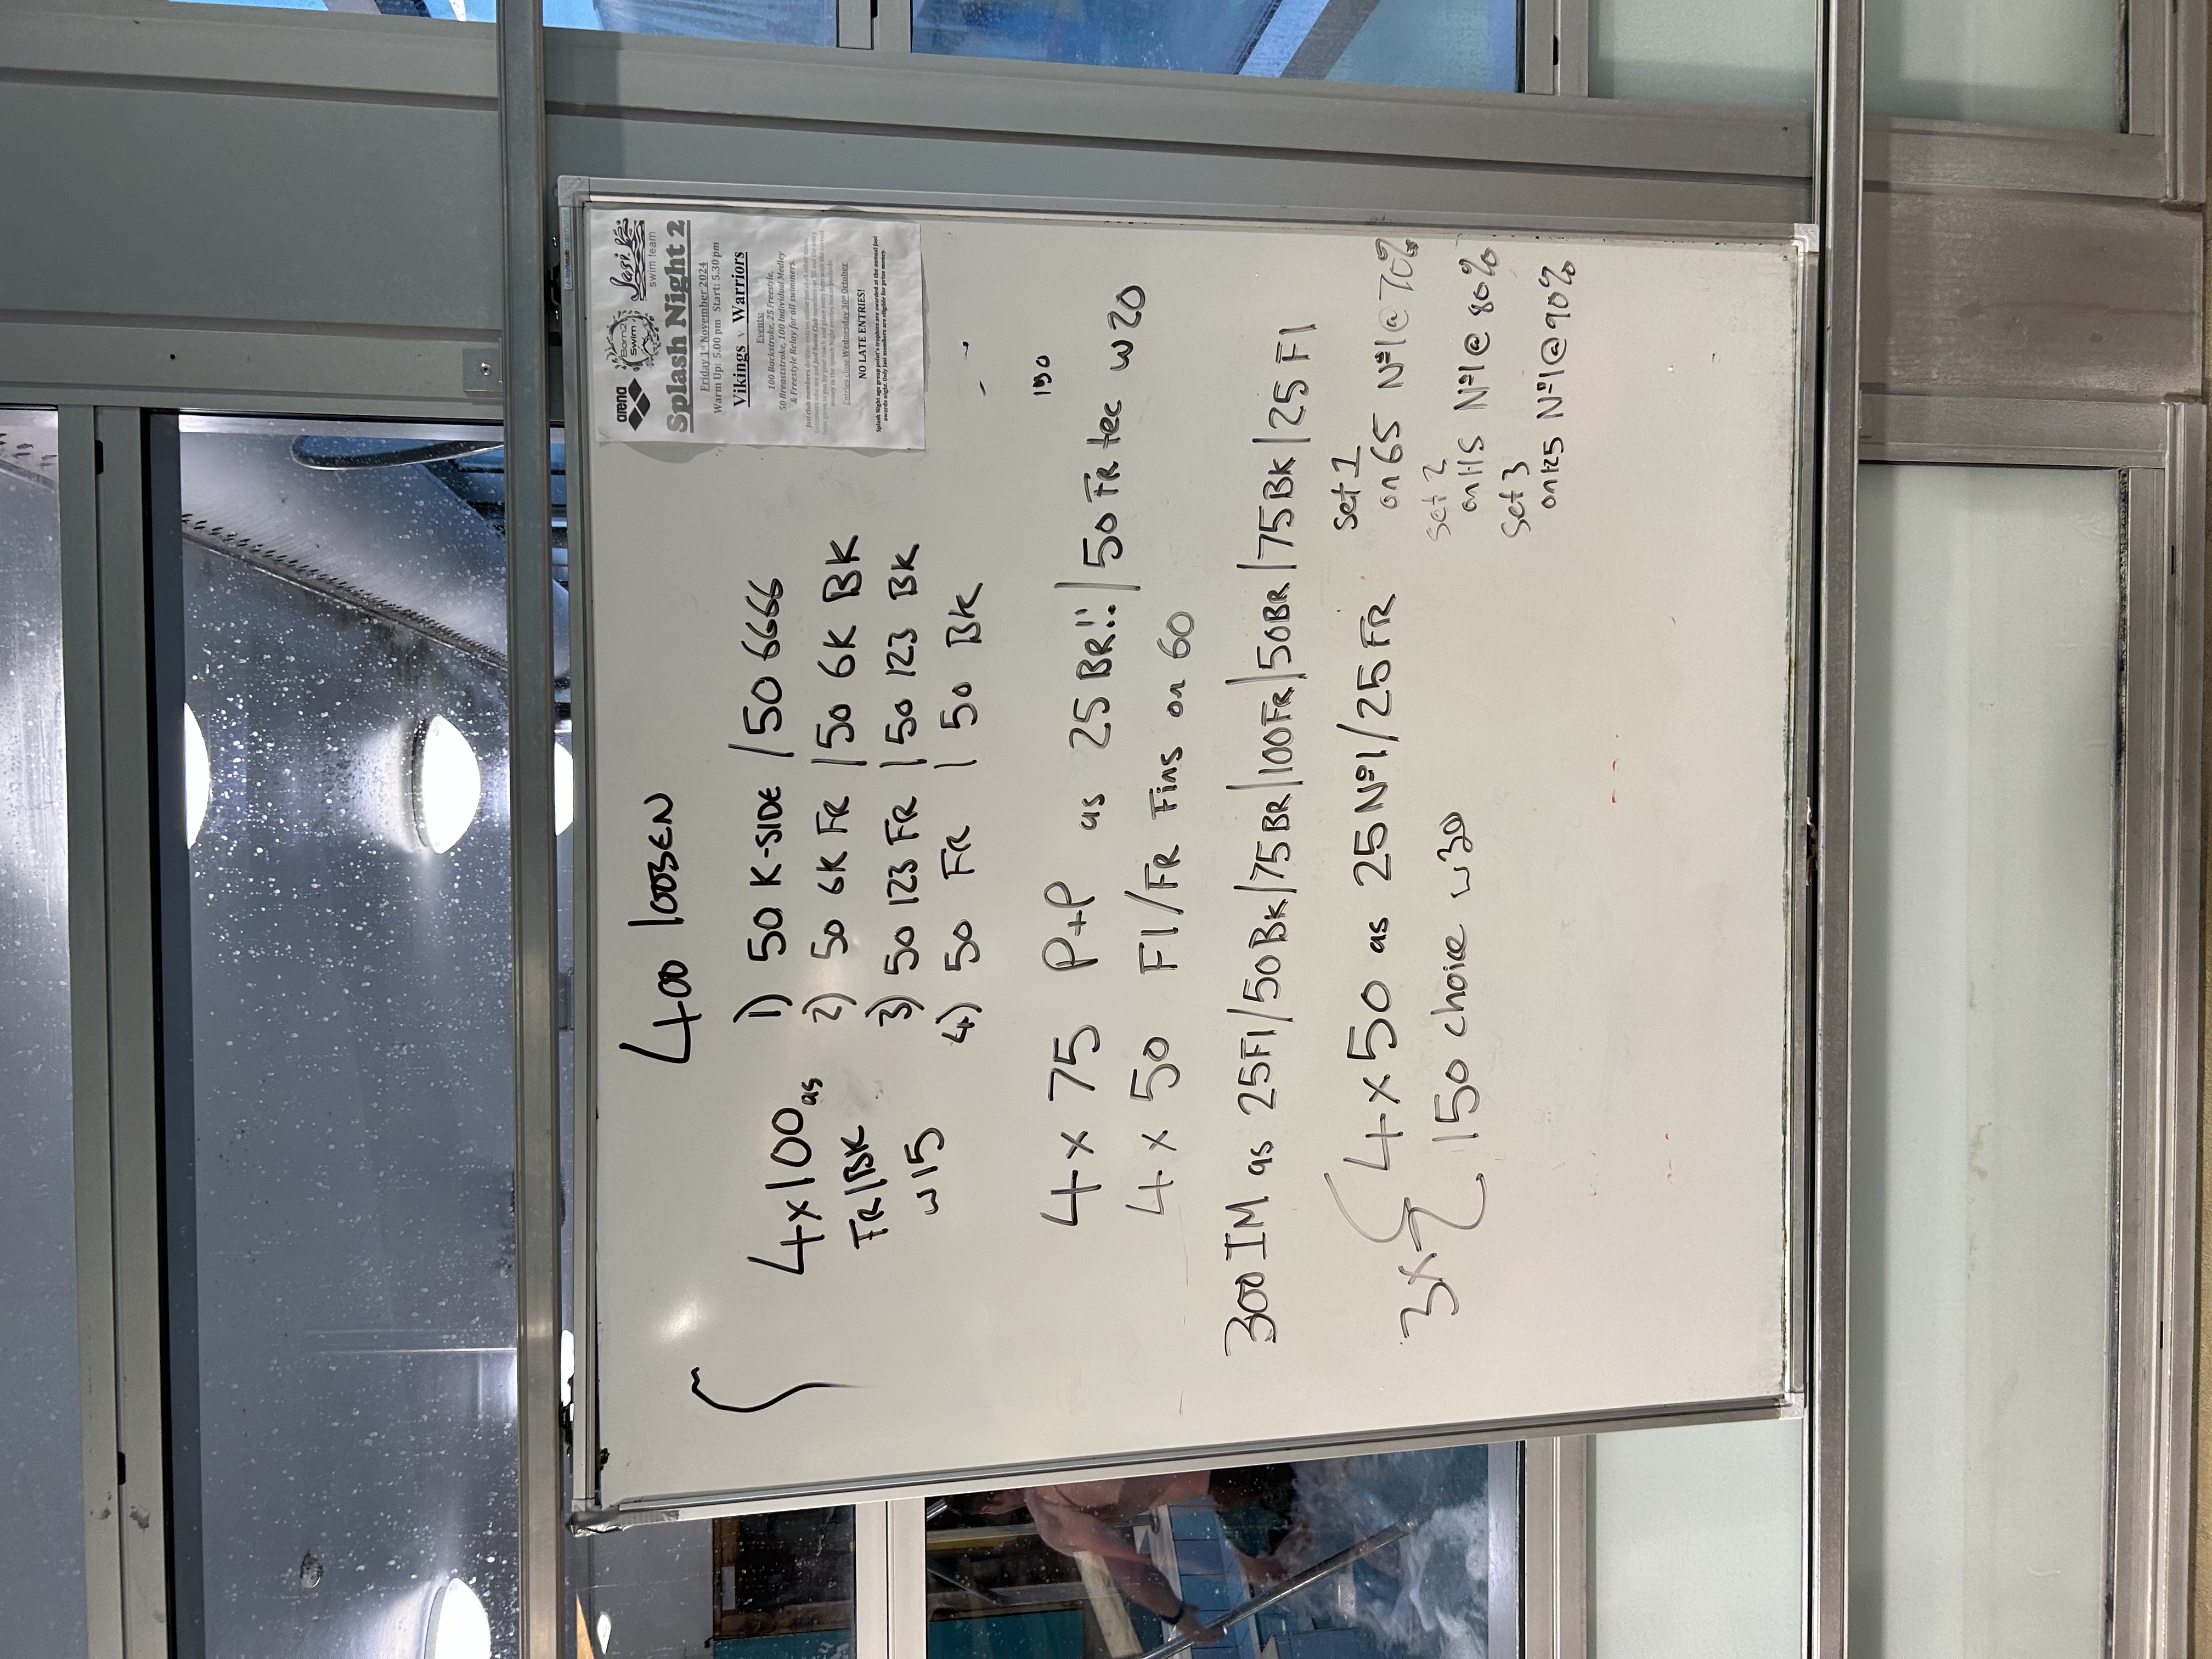 400 loosen
4x100 as
FR/BK
w15
1) 50 K-SIDE / 50 6666
2) 50 6K FR | 50 6K BK
3) 50 123 FR | 50 123 BK
4) 50 FR | 50 BK
4 x 75 P+P as 25 BR!! / 50 FR tec w20
150
4 x 50 Fl/FR Fins on 60
300 IM as 25Fl/50BK/75BR/100FR/50BR/75BK/25Fl
3x { 4x50 as 25 Nº1/25 FR
150 choice w30
Set 1
on 65 Nº1@70%
Set 2
on 115 Nº1@80%
Set 3
on 125 Nº1@90%
arena
Born2
Swim
swim team
Splash Night 2
Friday 1st November 2024
Warm Up: 5.00 pm Start: 5.30pm
Vikings v Warriors
Events:
100 Backstroke, 25 Freestyle,
50 Breaststroke, 100 Individual Medley
& Freestyle Relay for all swimmers.
Entries close: Wednesday 30th October
NO LATE ENTRIES!